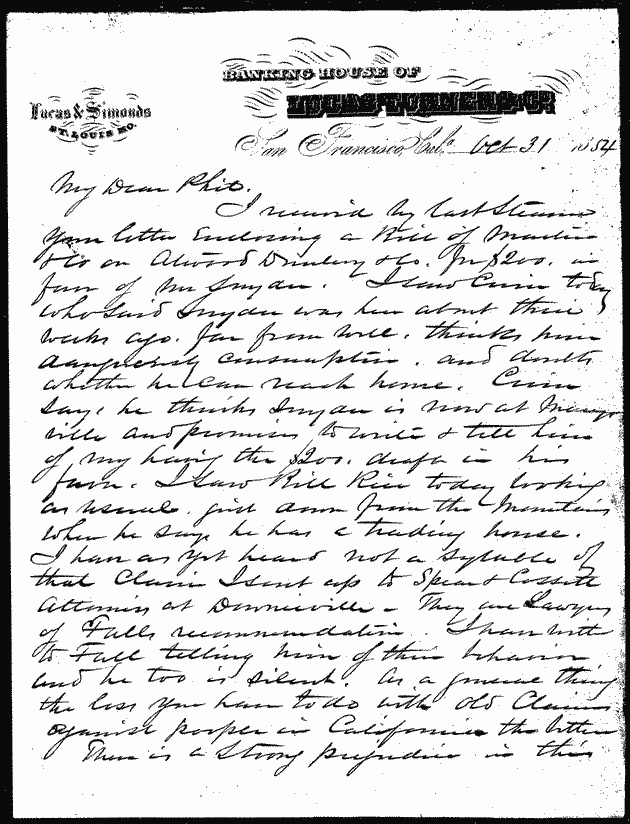 BANKING HOUSE OF
Lucas & Simonds
ST. LOUIS MO.
LUCAS TURNER & CO.
San Francisco, Cal. Oct 31 1854
My Dear Phil.
I received by last Steamer
your letter Enclosing a Bill of
& Co on Atwood & Co. for $200. in
favor of Mr Snyder. I saw today
who said Snyder was here about three
weeks ago. far from well. thinks him
dangerously consumptive. and doubts
whether he can reach home.
says he thinks Snyder is now at Marys-
ville and promises to write & tell him
of my having the $200. draft in his
favor. I saw Bill Rice today looking
as usual. just down from the Mountains
where he says he has a trading house.
I have as yet heard not a syllable of
that Claim I sent up to Spear &
Attorneys at Downieville - They are Lawyers
of Falls recommendation. I have written
to Fall telling him of their behavior
and he too is silent. As a general thing
the less you have to do with old Claims
against people in California the better
There is a strong prejudice in this